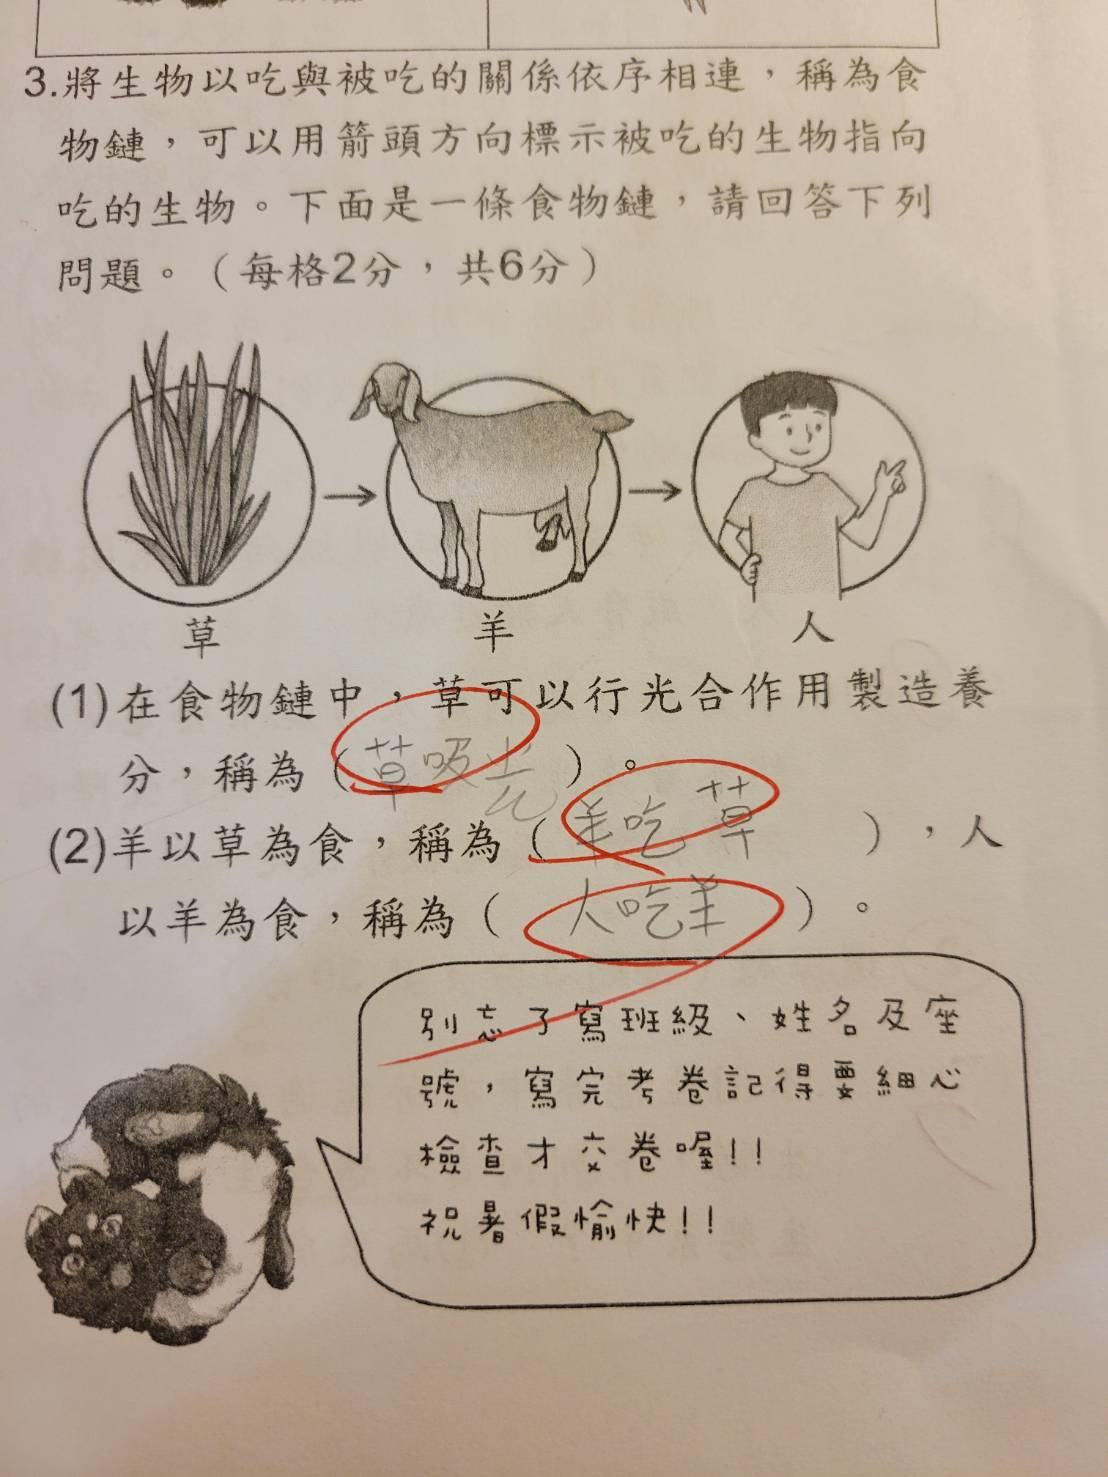 3.將生物以吃與被吃的關係依序相連，稱為食
物鏈，可以用箭頭方向標示被吃的生物指向
吃的生物。下面是一條食物鏈，請回答下列
問題。（每格2分，共6分）
草 羊 人
(1)在食物鏈中，草可以行光合作用製造養
分，稱為（草吸光）。
(2)羊以草為食，稱為（羊吃草），人
以羊為食，稱為（人吃羊）。
別忘了寫班級、姓名及座
號，寫完考卷記得要細心
檢查才交卷喔!!
祝暑假愉快!!